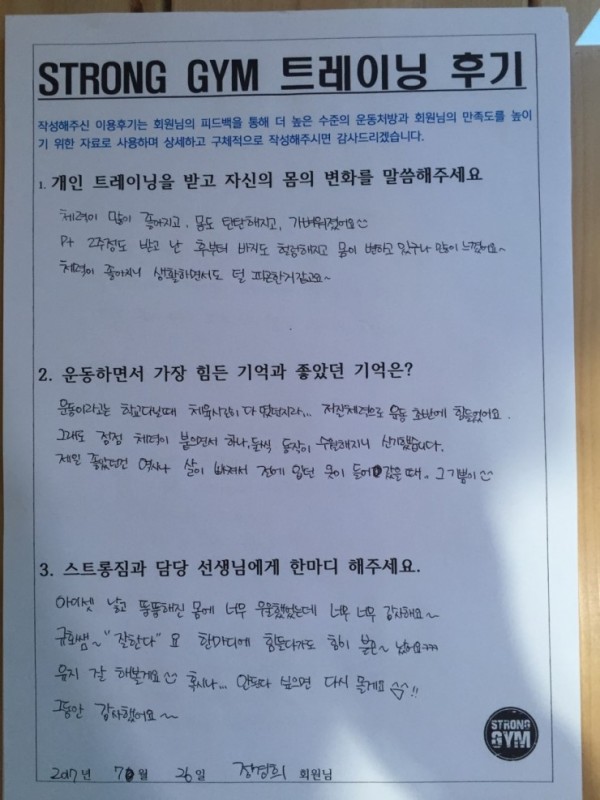 STRONG GYM 트레이닝 후기
작성해주신 이용후기는 회원님의 피드백을 통해 더 높은 수준의 운동처방과 회원님의 만족도를 높이
기 위한 자료로 사용하며 상세하고 구체적으로 작성해주시면 감사드리겠습니다.
1. 개인 트레이닝을 받고 자신의 몸의 변화를 말씀해주세요
체력이 많이 좋아지고, 몸도 탄탄해지고, 가벼워졌어요
Pt 2주정도 받고 난 후부터 바지도 헐렁해지고 몸이 변하고 있구나 많이 느꼈어요~
체력이 좋아지니 생활하면서도 덜 피곤한거같고요~
2. 운동하면서 가장 힘든 기억과 좋았던 기억은?
운동이라고는 학교다닐때 체육시간이 다 였던지라... 저질체력으로 운동 초반에 힘들었어요.
그래도 점점 체력이 붙으면서 하나, 둘씩 동작이 수월해지니 신기했습니다.
제일 좋았던건 역시나 살이 빠져서 전에 입던 옷이 들어갔을 때.. 그 기쁨이
3. 스트롱짐과 담당 선생님에게 한마디 해주세요.
아이셋 낳고 뚱뚱해진 몸에 너무 우울했었는데 너무 너무 감사해요~
규희쌤~ "잘한다" 요 한마디에 힘들다가도 힘이 불끈~ 났어요ㅋㅋㅋ
유지 잘 해볼게요 혹시나... 안되다 싶으면 다시 올게요 ^^!!
그동안 감사했어요~
STRONG
GYM
2017년 7월 26일 장경희 회원님